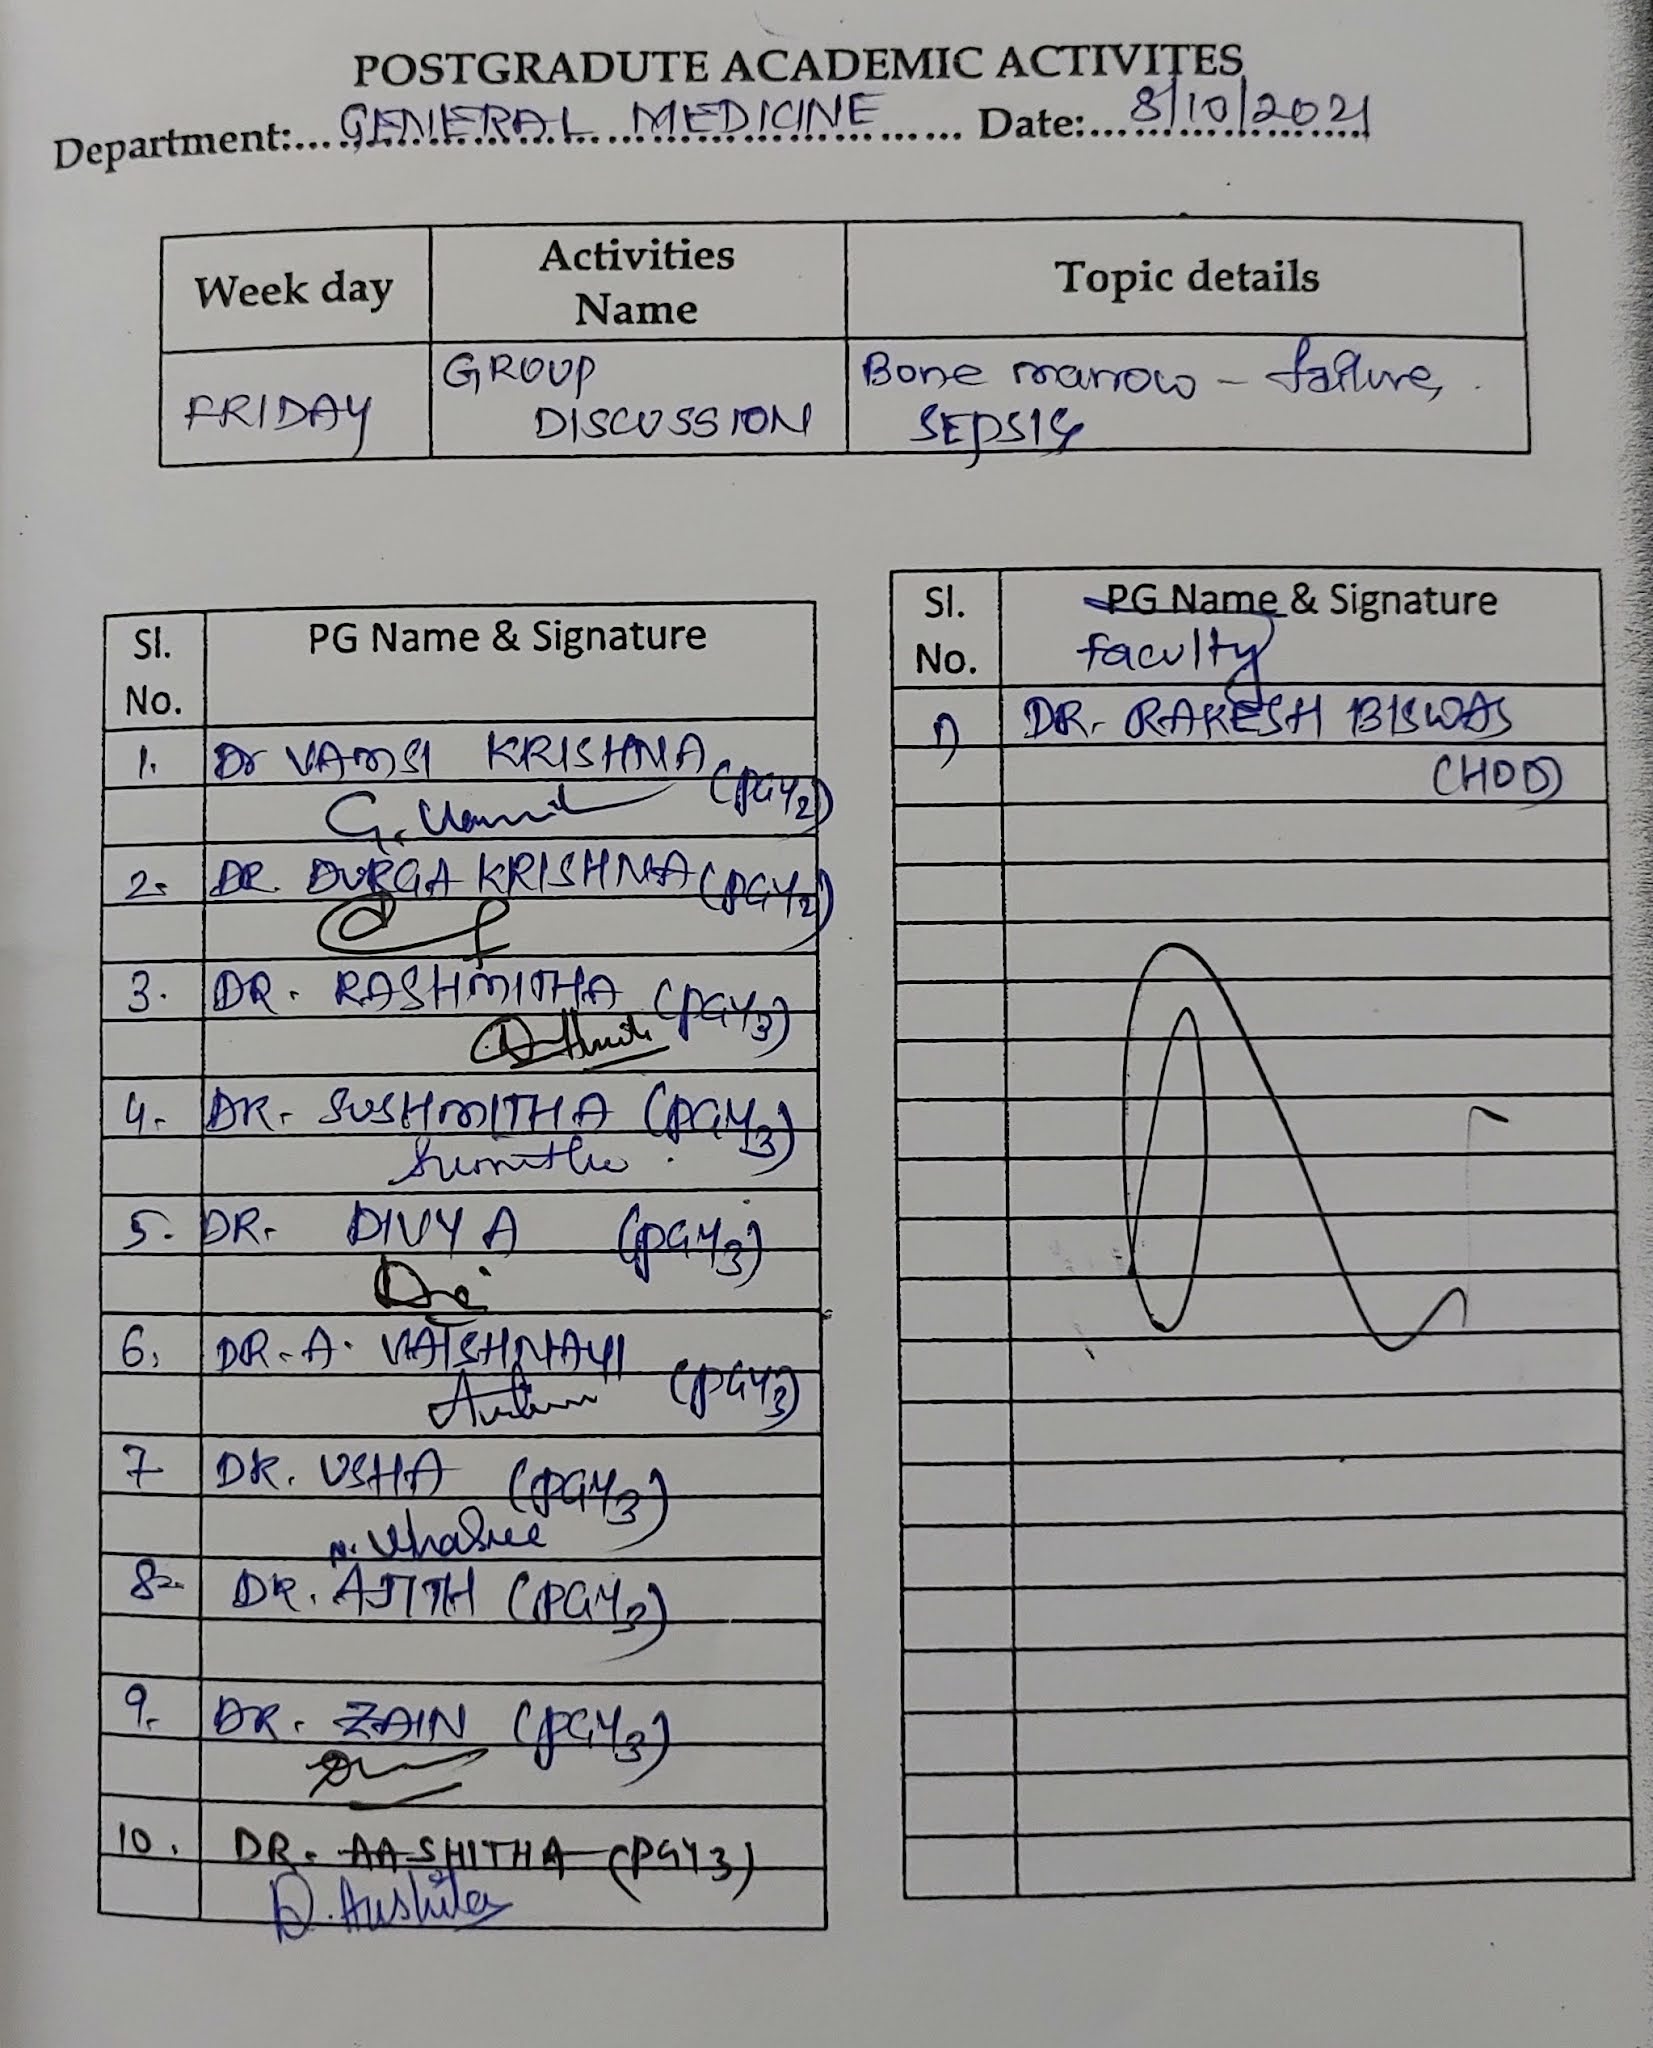 POSTGRADUTE ACADEMIC ACTIVITES
Department:... GENERAL MEDICINE ... Date:... 8/10/2021
Week day
Activities
Name
Topic details
FRIDAY
GROUP
DISCUSSION
Bone marrow - failure,
SEPSIS
Sl.
No.
PG Name & Signature
1. Dr VAMSI KRISHNA (PGY2)
G. Vamsi
2. DR. DURGA KRISHNA (PGY2)
3. DR. RASHMITHA (PGY3)
4. DR. SUSHMITHA (PGY3)
5. DR. DIVYA (PGY3)
6. DR. A. VAISHNAVI
(PGY3)
7 DR. USHA (PGY3)
N. Ushasree
8. DR. AJITH (PGY3)
9. DR. ZAIN (PGY3)
10. DR. AASHITHA (PGY3)
D. Aashitha
Sl.
No.
PG Name & Signature
faculty
1) DR. RAKESH BISWAS
(HOD)